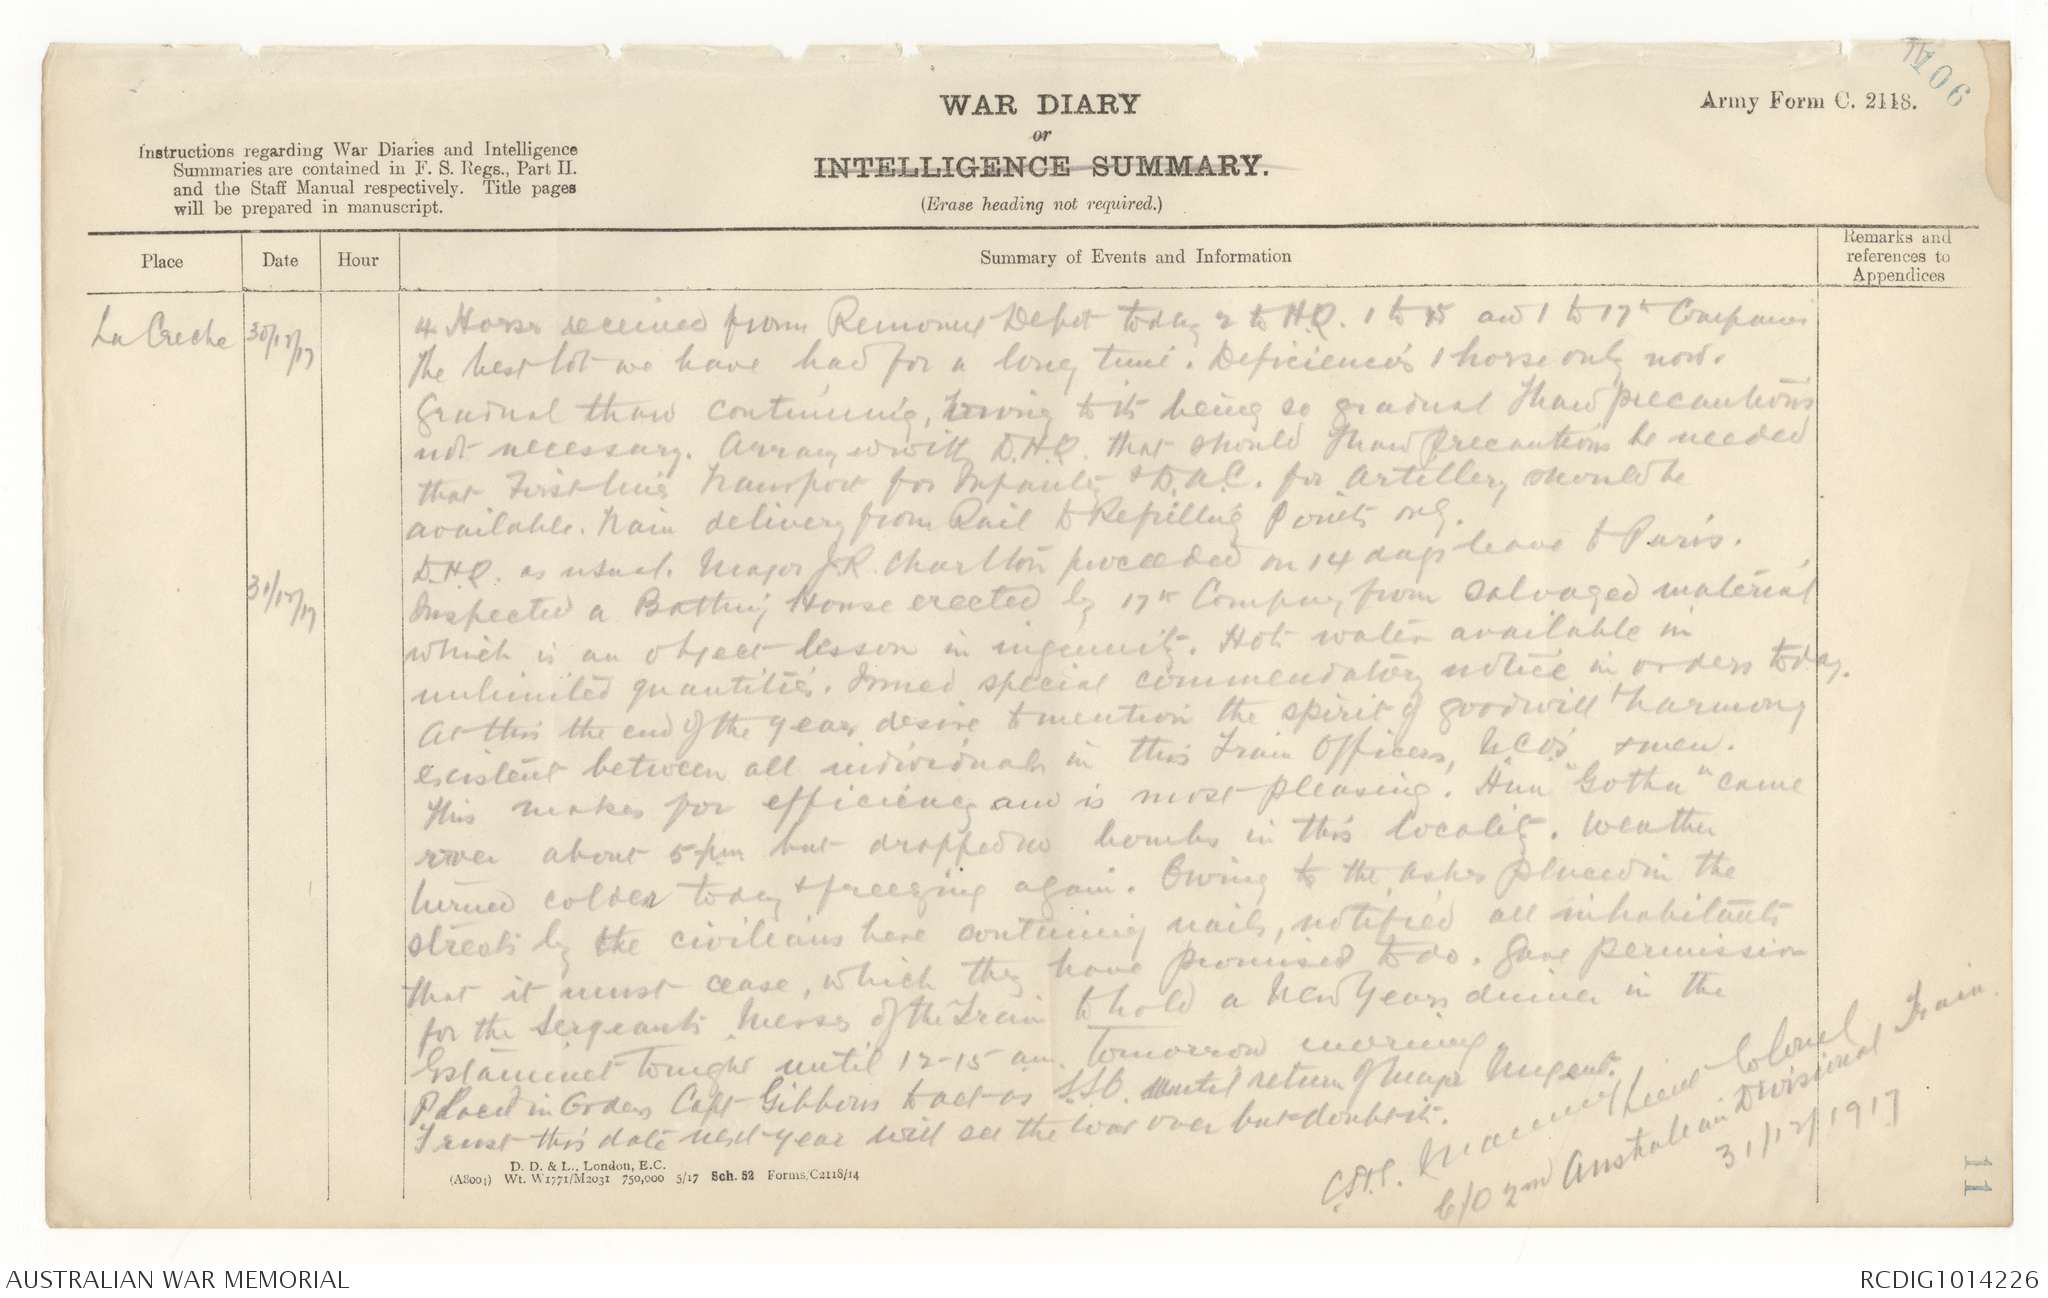 106
WAR DIARY
or
INTELLIGENCE SUMMARY.
(Erase heading not required.)
Army Form C. 2118.
Instructions regarding War Diaries and Intelligence
Summaries are contained in F. S. Regs., Part II.
and the Staff Manual respectively. Title pages
will be prepared in manuscript.
Place
Date
Hour
Summary of Events and Information
Remarks and
references to
Appendices
La Creche 30/12/17 4 Horses received from Remount Depot today 2 to H.Q. 1 to 15 and 1 to 17th Companies
The best lot we have had for a long time. Deficiencies 1 horse only now.
Gradual thaw continuing, owing to its being so gradual Thaw precautions
not necessary. Arrang with D.H.Q. that should Thaw precautions be needed
that First line Transport for Infantry & D.A.C. for Artillery should be
available. Train delivery from Rail to Refilling Points only.
31/12/17 D.H.Q. as usual. Major J.R. Charlton proceeded on 14 days leave to Paris.
Inspected a Bathing House erected by 17th Company from salvaged material
which is an object lesson in ingenuity. Hot water available in
unlimited quantities. Issued special commendatory notice in orders today.
At this the end of the year desire to mention the spirit of goodwill & harmony
existent between all individuals in this Train Officers, NCO's & men.
This makes for efficiency and is most pleasing. Hun "Gotha" came
over about 5 pm but dropped no bombs in this locality. Weather
turned colder today & freezing again. Owing to the ashes placed in the
streets by the civilians here containing nails, notified all inhabitants
that it must cease, which they have promised to do. Gave permission
for the Sergeants Messes of the Train to hold a New Years dinner in the
Estaminet Tonight until 12-15 am. Tomorrow morning.
Placed in Orders Capt Gibbons to act as S.S.O. until return of Major Nugent.
Trust this date next year will see the War over but doubt it.
Lieut Colonel
C/O 2nd Australian Divisional Train.
31/12/1917
D. D. & L., London, E.C.
(A8004) Wt. W1771/M2031 750,000 5/17 Sch. 52 Forms/C2118/14
11
AUSTRALIAN WAR MEMORIAL
RCDIG1014226